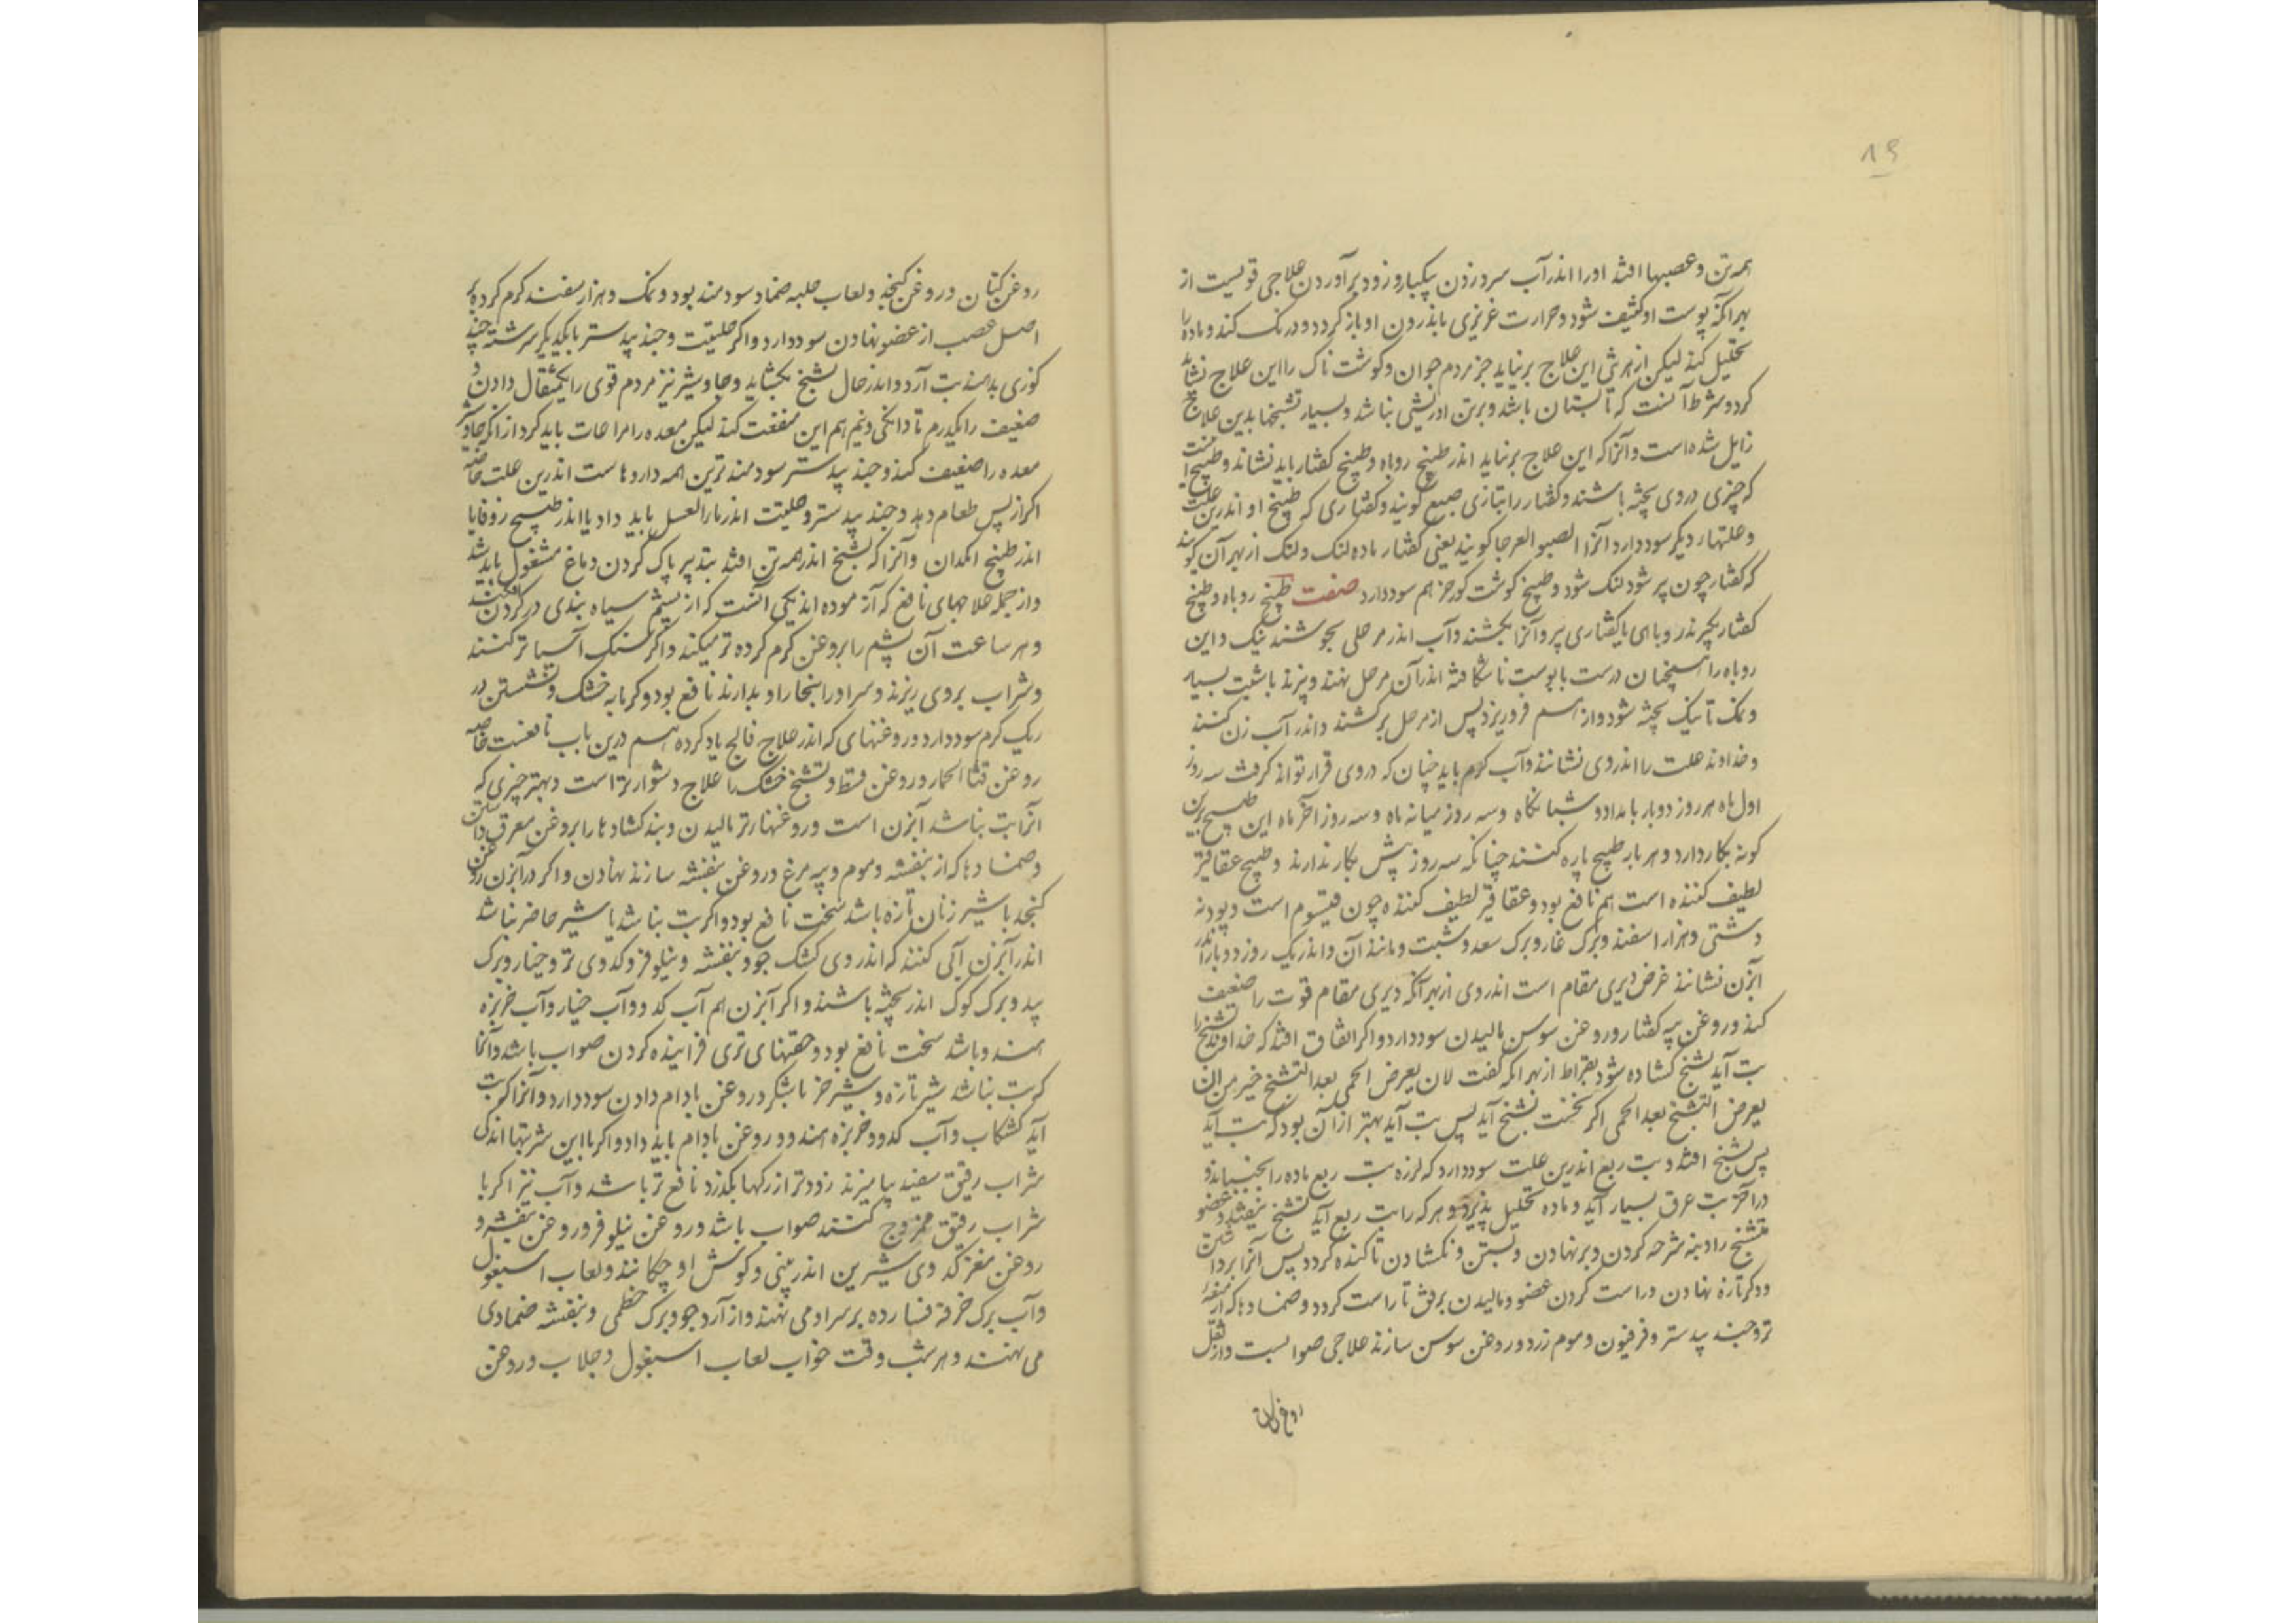 ۱۹
همه تن و عصبها افتد او را اندر آب سرد زدن بیکبار و زود برآوردن علاجی قویست از
بهر آنکه پوست او کثیف شود و حرارت غریزی باندرون او باز کردد و درنک کند و ماده را
تحلیل کند لیکن از هر تنی این علاج برنیاید جز مردم جوان و کوشت ناک را این علاج نشاید
کرد و شرط آنست که تابستان باشد و بر تن او ریشی نباشد و بسیار تشنجها بدین علاج
زایل شده است و آنرا که این علاج برنیاید اندر طبیخ روباه و طبیخ کفتار باید نشاند و طبیخ
که چیزی در وی پخته باشند و کفتار را بتازی ضبع کویند و کفتاری که طبیخ او اندرین علت
و علتهاء دیکر سود دارد آنرا الضبع العرجا کویند یعنی کفتار ماده لنک و لنک از بهر آن کویند
که کفتار چون پر شود لنک شود و طبیخ کوشت کورخر هم سود دارد صفت طبیخ روباه و طبیخ
کفتار بکیرند روباهی یا کفتاری پیر و آنرا بکشند و آب اندر مرجلی بجوشند نیک و این
روباه را همچنان درست با پوست ناشکافته اندر آن مرجل نهند و بپزند با شبت بسیار
و نمک تا نیک پخته شود و از هم فرو ریزد پس از مرجل برکشند و اندر آب زن کنند
و خداوند علت را اندر وی نشانند و آب کرم باید چنان که در وی قرار تواند کرفت سه روز
اول ماه هر روز دو بار بامداد و شبانکاه و سه روز میانه ماه و سه روز آخر ماه این طبیخ برین
کونه بکار دارد و هر بار طبیخ پاره کنند چنانکه سه روز بیش بکار ندارند و طبیخ عقاقیر
لطیف کننده است هم نافع بود و عقاقیر لطیف کننده چون قیسوم است و پودنه
دشتی و هزار اسفند و برک غار و برک سعد و شبت و مانند آن و اندر یک روز دو بار اندر
آبزن نشانند غرض دیری مقام است اندر وی از بهر آنکه دیری مقام قوت را ضعیف
کند و روغن پیه کفتار و روغن سوس مالیدن سود دارد و اکر اتفاق افتد که خداوند تشنج را
تب آید تشنج کشاده شود بقراط از بهر آنکه کفت لان یعرض الحمی بعد التشنج خیر من ان
یعرض التشنج بعد الحمی اکر نخست تشنج آید پس تب آید بهتر از آن بود که تب آید
پس تشنج افتد و تب ربع اندرین علت سود دارد که لرزه تب ربع ماده را بجنباند و
در آخر تب عرق بسیار آید و ماده تحلیل پذیرد و هر که را تب ربع آید تشنج نیفتد و عضو
متشنج را دنبه شرحه کردن و برنهادن و بستن و نکشادن تا کنده کردد پس آنرا برداشتن
و دکر تازه نهادن و راست کردن عضو و مالیدن برفق تا راست کردد و ضمادها که از
تر و جند بیدستر و فرفیون و موم زرد و روغن سوس سازند علاجی صوابست و از ثفل
روغن کتان
روغن کتان و روغن کنجد و لعاب حلبه ضماد سودمند بود و نمک و هزار سفند کرم کرده بر
اصل عصب از عضو نهادن سود دارد و اکر حلتیت و جند بیدستر با یکدیکر سرشته چند
کوزی بدهند تب آرد و اندر حال تشنج بکشاید و جاوشیر نیز مردم قوی را یکمثقال دادن و
ضعیف را یکدرم تا دانکی و نیم هم این منفعت کند لیکن معده را مراعات باید کرد از آنکه جاوشیر
معده را ضعیف کند و جند بیدستر سودمندترین همه داروهاست اندرین علت خاصه
اکر از پس طعام دهد و جند بیدستر و حلتیت اندر ماء العسل باید داد یا اندر طبیخ زوفا یا
اندر طبیخ انکدان و آنرا که تشنج اندر همه تن افتد بتدبیر پاک کردن دماغ مشغول باید شد
و از جمله علاجهای نافع که آزموده اند یکی آنست که از پشم سیاه بندی در کردن افکنند
و هر ساعت آن پشم را بروغن کرم کرده تر میکند و اکر سنک آسیا تر کنند
و شراب بروی ریزند و سر او را ببخار او بدارند نافع بود و کرمابه خشک و نشستن در
ریک کرم سود دارد و روغنهای که اندر علاج فالج یاد کرده هم درین باب نافعست خاصه
روغن قثاء الحمار و روغن قسط و تشنج خشک را علاج دشوارتر است و بهتر چیزی که
آنرا تب نباشد آبزن است و روغنهاء تر مالیدن و بندکشادها را بروغن معرق داشتن
و ضمادها که از بنفشه و موم و پیه مرغ و روغن بنفشه سازند نهادن و اکر در آبزن روغن
کنجد با شیر زنان تازه باشد سخت نافع بود و اکر تب نباشد یا شیر حاضر نباشد
اندر آبزن آبی کنند که اندر وی کشک جو و بنفشه و نیلوفر و کدوی تر و خیار و برک
بید و برک کوک اندر پخته باشند و اکر آبزن هم آب کدو و آب خیار و آب خربزه
هندو باشد سخت نافع بود و حقنهای تری فزاینده کردن صواب باشد و آنرا
که تب نباشد شیر تازه و شیر خر با شکر و روغن بادام دادن سود دارد و آنرا که تب
آید کشکاب و آب کدو و خربزه هندو و روغن بادام باید داد و اکر با این شربتها اندکی
شراب رقیق سفید بیامیزند زودتر از رکها بکذرد نافع تر باشد و آب نیز اکر با
شراب رقیق ممزوج کنند صواب باشد و روغن نیلوفر و روغن بنفشه و
روغن مغز کدوی شیرین اندر بینی و کوش او چکانند و لعاب اسبغول
و آب برک خرفه فسارده بر سر او می نهند و از آرد جو و برک خطمی و بنفشه ضمادی
می نهند و هر شب وقت خواب لعاب اسبغول و جلاب و روغن